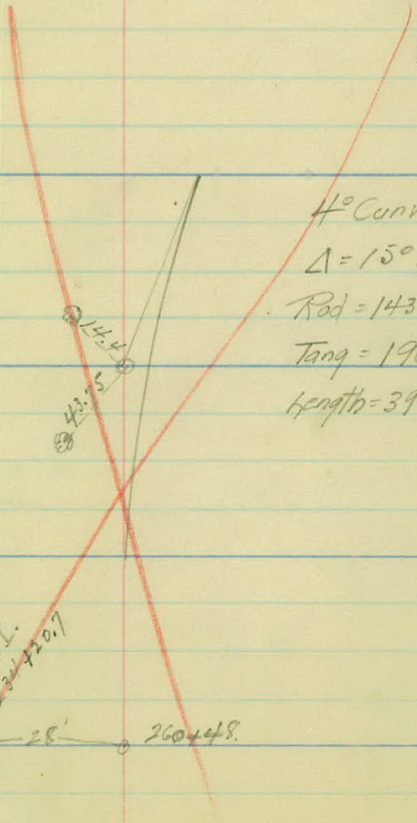 4° Curv
Δ = 15°
Rad = 143
Tang = 19
Length = 39
14.4
43.75
+20.7
28'
260+48.